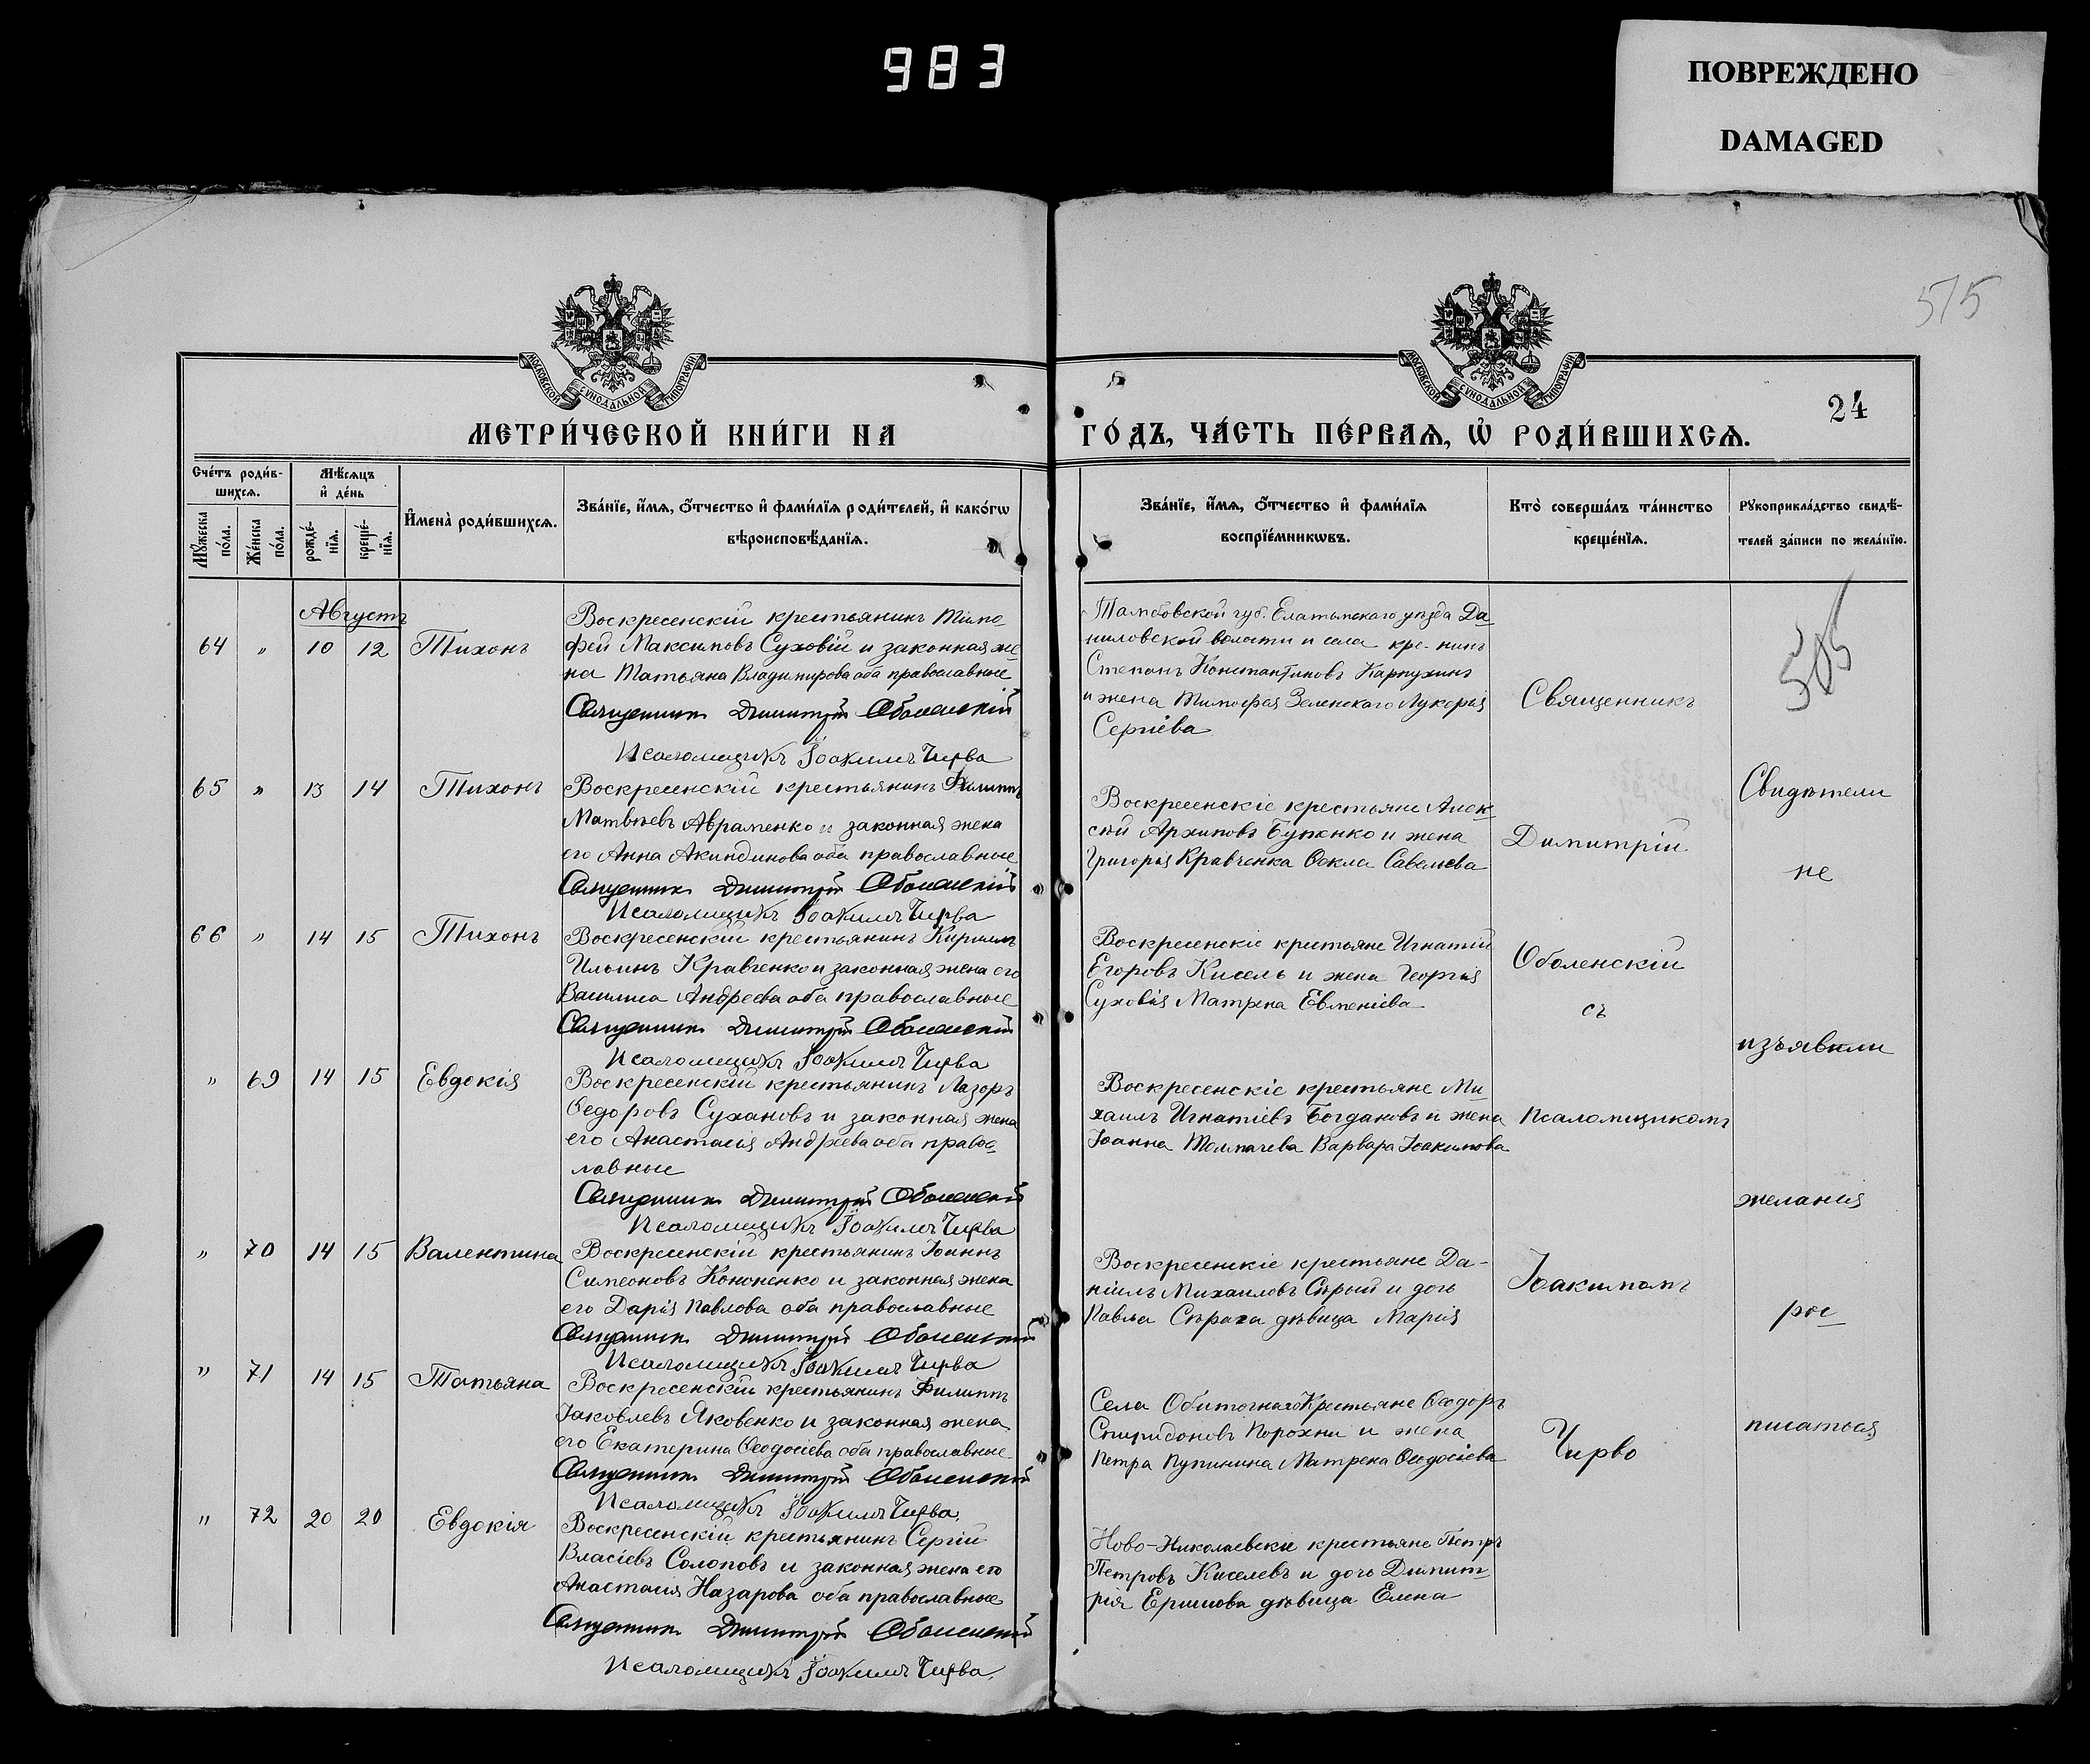 983
ПОВРЕЖДЕНО
DAMAGED
575
МОСКОВСКОЙ СУНОДАЛЬНОЙ ТИПОГРАФІИ
МОСКОВСКОЙ СУНОДАЛЬНОЙ ТИПОГРАФІИ
24
МЕТРИ́ЧЕСКОЙ КНИ́ГИ НА
ГО́ДЪ, ЧА́СТЬ ПЕ́РВАЯ, Ѡ РОДИ́ВШИХСЯ.
Сче́тъ роди́в-
шихся.
Мѣсяцъ
и де́нь
Мужеска
по́ла.
Же́нска
по́ла.
рожде́-
нія.
креще́-
нія.
Имена̀ роди́вшихся.
Зва́ніе, и́мя, о́тчество и фами́лія роди́телей, и како́гѡ
вѣроисповѣ́данія.
Зва́ніе, и́мя, о́тчество и фами́лія
воспріе́мникѡвъ.
Кто̀ соверша́лъ та́инство
креще́нія.
Рукоприкла́дство свидѣ́-
телей за́писи по жела́нію.
Августъ
64 " 10 12 Тихонъ
Воскресенскій крестьянинъ Тимо-
фей Максимовъ Суховій и законная же-
на Татьяна Владимирова оба православные
Священникъ Димитрій Оболенскій
Псаломщикъ Іоакимъ Чирва
Тамбовской губ. Елатомскаго уѣзда Да-
ниловской волости и села кре-нинъ
Степанъ Константиновъ Карпухинъ
и жена Тимофея Зеленскаго Лукерія
Сергіева
505
65 " 13 14 Тихонъ
Воскресенскій крестьянинъ Филиппъ
Матвѣевъ Авраменко и законная жена
его Анна Акиндинова оба православные
Священникъ Димитрій Оболенскій
Псаломщикъ Іоакимъ Чирва
Воскресенскіе крестьяне Алек-
сѣй Архиповъ Бутенко и жена
Григорія Кравченка Ѳекла Савельева
66 " 14 15 Тихонъ
Воскресенскій крестьянинъ Кириллъ
Ильинъ Кравченко и законная жена его
Василиса Андреева оба православные
Священникъ Димитрій Оболенскій
Псаломщикъ Іоакимъ Чирва
Воскресенскіе крестьяне Игнатій
Егоровъ Кисель и жена Георгія
Суховія Матрена Евменіева
" 69 14 15 Евдокія
Воскресенскій крестьянинъ Лазоръ
Ѳедоровъ Сухановъ и законная жена
его Анастасія Андреева оба правос-
лавные
Священникъ Димитрій Оболенскій
Псаломщикъ Іоакимъ Чирва
Воскресенскіе крестьяне Ми-
хаилъ Игнатіевъ Богдановъ и жена
Іоанна Толмачева Варвара Іоакимова
" 70 14 15 Валентина
Воскресенскій крестьянинъ Іоаннъ
Симеоновъ Кононенко и законная жена
его Дарія Павлова оба православные
Священникъ Димитрій Оболенскій
Псаломщикъ Іоакимъ Чирва
Воскресенскіе крестьяне Да-
ніилъ Михаиловъ Сѣрый и дочь
Павла Сѣрага дѣвица Марія
" 71 14 15 Татьяна
Воскресенскій крестьянинъ Филиппъ
Іаковлевъ Яковенко и законная жена
его Екатерина Ѳеодосіева оба православные
Священникъ Димитрій Оболенскій
Псаломщикъ Іоакимъ Чирва
Села Обиточнаго Крестьяне Ѳеодоръ
Спиридоновъ Порохни и жена
Петра Пупинина Матрена Ѳеодосіева
" 72 20 20 Евдокія
Воскресенскій крестьянинъ Сергій
Власіевъ Солоповъ и законная жена его
Анастасія Назарова оба православные
Священникъ Димитрій Оболенскій
Псаломщикъ Іоакимъ Чирва
Ново-Николаевскіе крестьяне Петръ
Петровъ Киселевъ и дочь Димит-
рія Ершова дѣвица Елена
Священникъ
Димитрій
Оболенскій
съ
псаломщикомъ
Іоакимомъ
Чирво
Свидѣтели
не
изъявили
желанія
рос-
писаться